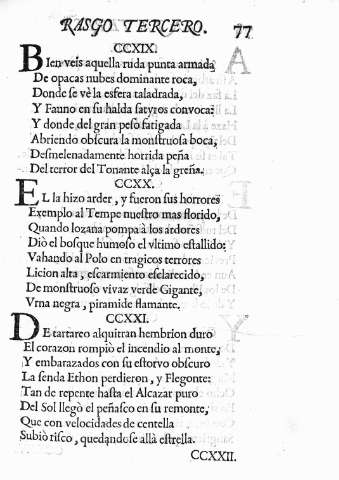 RASGO TERCERO. 77
CCXIX.
BIen veis aquella ruda punta armada
De opacas nubes dominante roca,
Donde se vè la esfera taladrada,
Y Fauno en su halda satyros convoca:
Y donde del gran peso fatigada
Abriendo obscura la monstruosa boca,
Desmelenadamente horrida peña
Del terror del Tonante alça la greña.
CCXX.
EL la hizo arder, y fueron sus horrores
Exemplo al Tempe nuestro mas florido,
Quando lozana pompa à los ardores
Diò el bosque humoso el vltimo estallido:
Vahando al Polo en tragicos terrores
Licion alta, escarmiento esclarecido,
De monstruoso vivaz verde Gigante,
Vrna negra, piramide flamante.
CCXXI.
DE tartareo alquitran hembrion duro
El corazon rompiò el incendio al monte,
Y embarazados con su estorvo obscuro
La senda Ethon perdieron, y Flegonte:
Tan de repente hasta el Alcazar puro
Del Sol llegò el peñasco en su remonte,
Que con velocidades de centella
Subiò risco, quedandose allà estrella.
CCXXII.